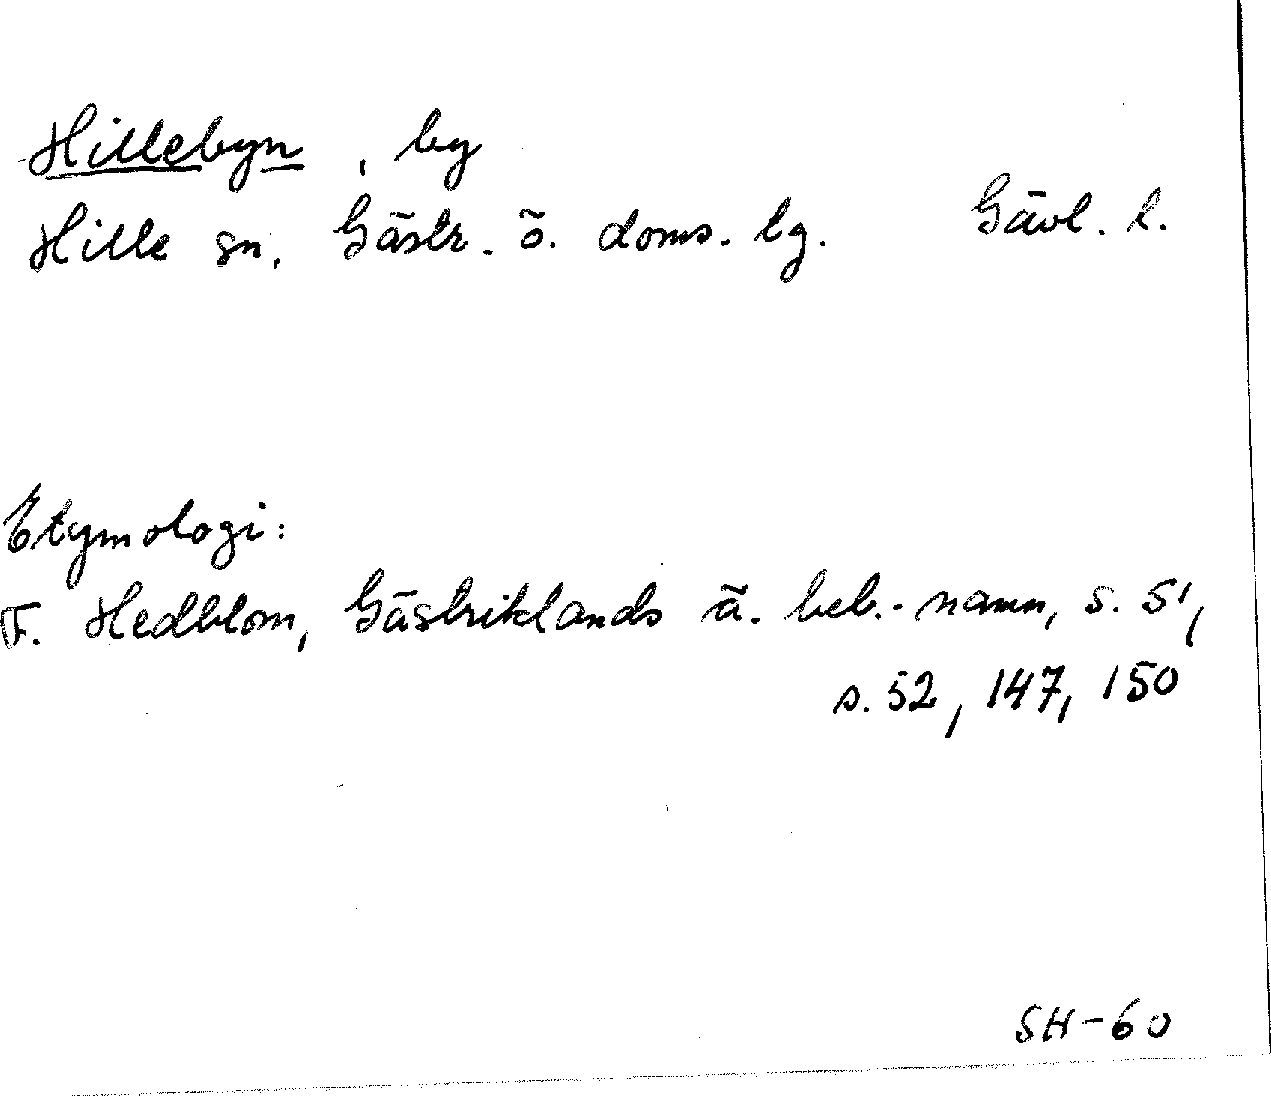 Hillebyn, by
Hille sn, Gästr. ö. doms. lg. Gävl. l.
Etymologi:
F. Hedblom, Gästriklands ä. beb.-namn, s. 51,
s. 52, 147, 150
SH-60